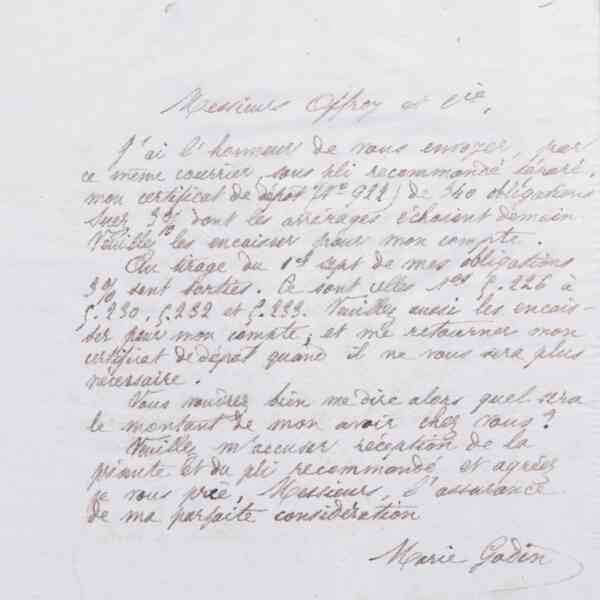 Messieurs Offroy et Cie,
J'ai l'honneur de vous envoyer, par
ce même courrier, sous pli recommandé séparé,
mon certificat de dépôt (No 922) de 340 obligations
Suez 3% dont les arrérages échoient demain
Veuillez les encaisser pour mon compte.
Au tirage du 1er sept de mes obligations
3% sont sorties. Ce sont celles Nos
230, 232 et 233. Veuillez aussi les encais-
ser pour mon compte, et me retourner mon
certificat de dépôt quand il ne vous sera plus
nécessaire.
Vous voudrez bien me dire alors quel sera
le montant de mon avoir chez vous?
Veuillez m'accuser réception de la
présente et du pli recommandé et agréez
je vous prie, Messieurs, l'assurance
de ma parfaite considération
Marie Godin